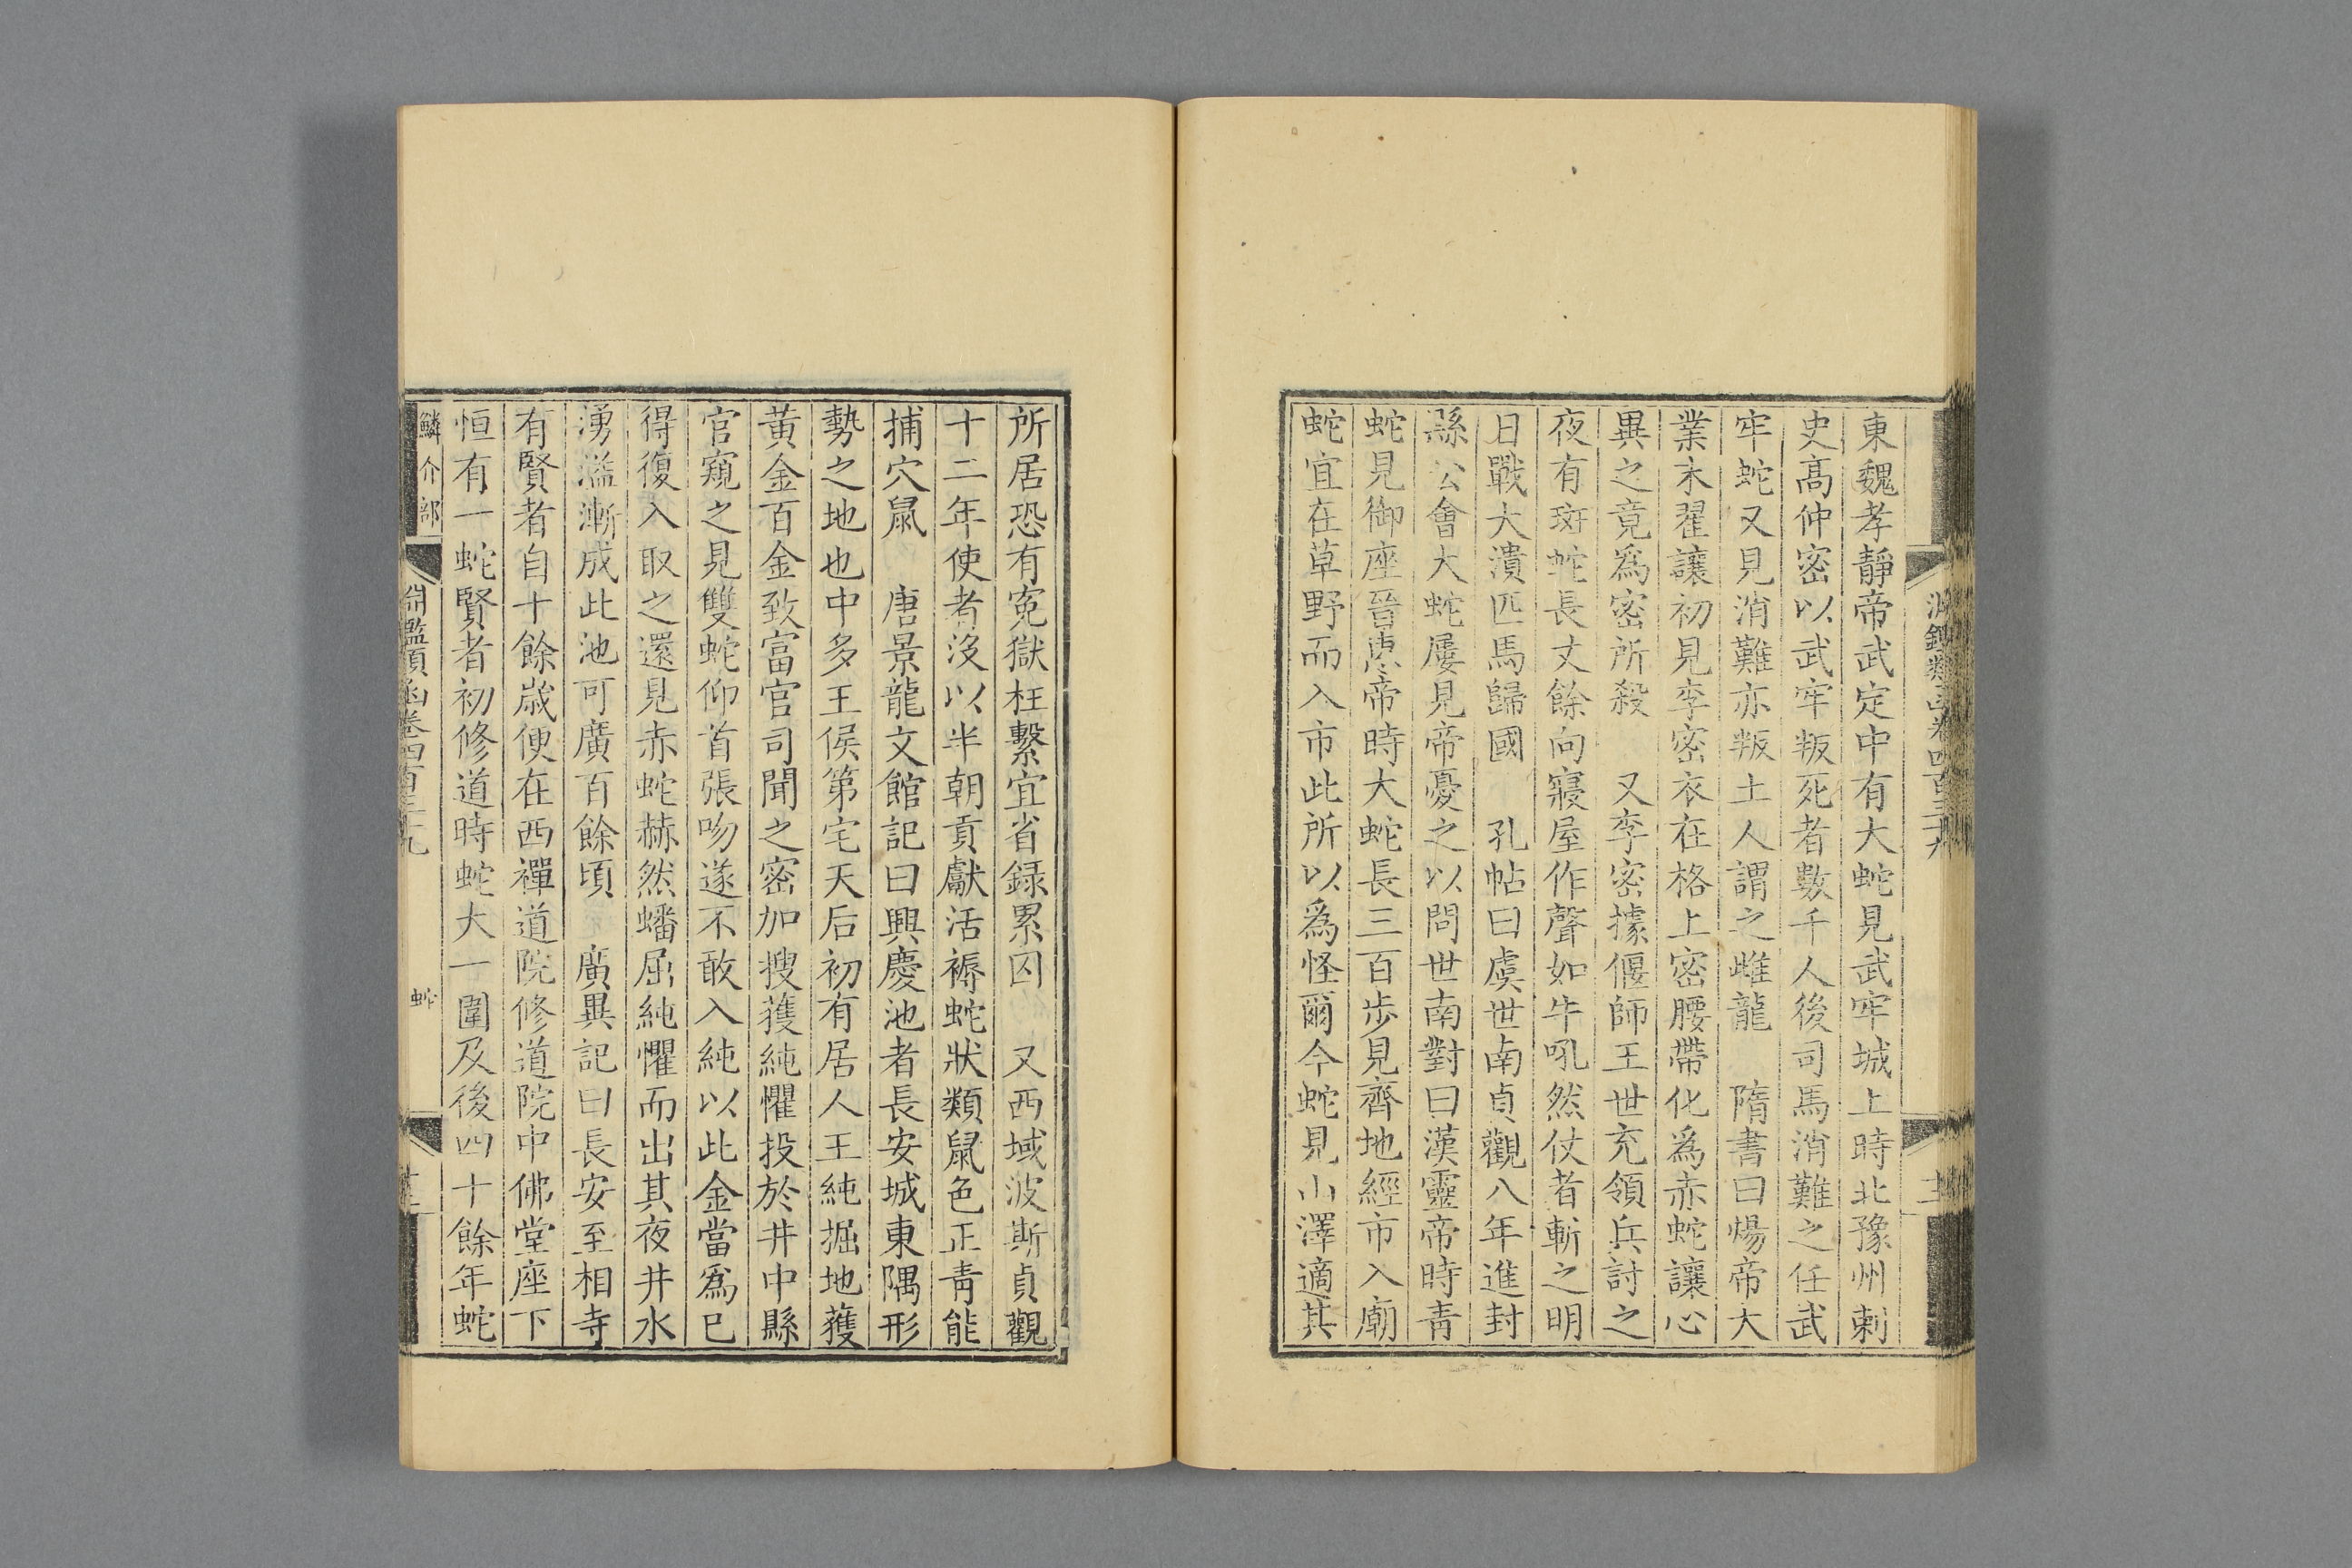 東魏孝靜帝武定中有大蛇見武牢城上時北豫州刺
史高仲密以武牢叛死者數千人後司馬消難之任武
牢蛇又見消難亦叛土人謂之雌龍　隋書曰煬帝大
業末翟讓初見李密衣在格上密腰帶化爲赤蛇讓心
異之竟爲密所殺　又李密據偃師王世充領兵討之
夜有斑蛇長丈餘向寢屋作聲如牛吼然仗者斬之明
日戰大潰匹馬歸國　孔帖曰虞世南貞觀八年進封
縣公會大蛇屢見帝憂之以問世南對曰漢靈帝時青
蛇見御座晉惠帝時大蛇長三百步見齊地經市入廟
蛇宜在草野而入市此所以爲怪爾今蛇見山澤適其
所居恐有寃獄枉繫宜省録累囚　又西域波斯貞觀
十二年使者沒以半朝貢獻活褥蛇狀類鼠色正青能
捕穴鼠　唐景龍文館記曰興慶池者長安城東隅形
勢之地也中多王侯第宅天后初有居人王純掘地獲
黃金百金致富官司聞之密加搜獲純懼投於井中縣
官窺之見雙蛇仰首張吻遂不敢入純以此金當爲已
得復入取之還見赤蛇赫然蟠屈純懼而出其夜井水
湧溢漸成此池可廣百餘頃　廣異記曰長安至相寺
有賢者自十餘歲便在西禪道院修道院中佛堂座下
恒有一蛇賢者初修道時蛇大一圍及後四十餘年蛇
鱗介部
淵鑑類函卷四百三十九
蛇